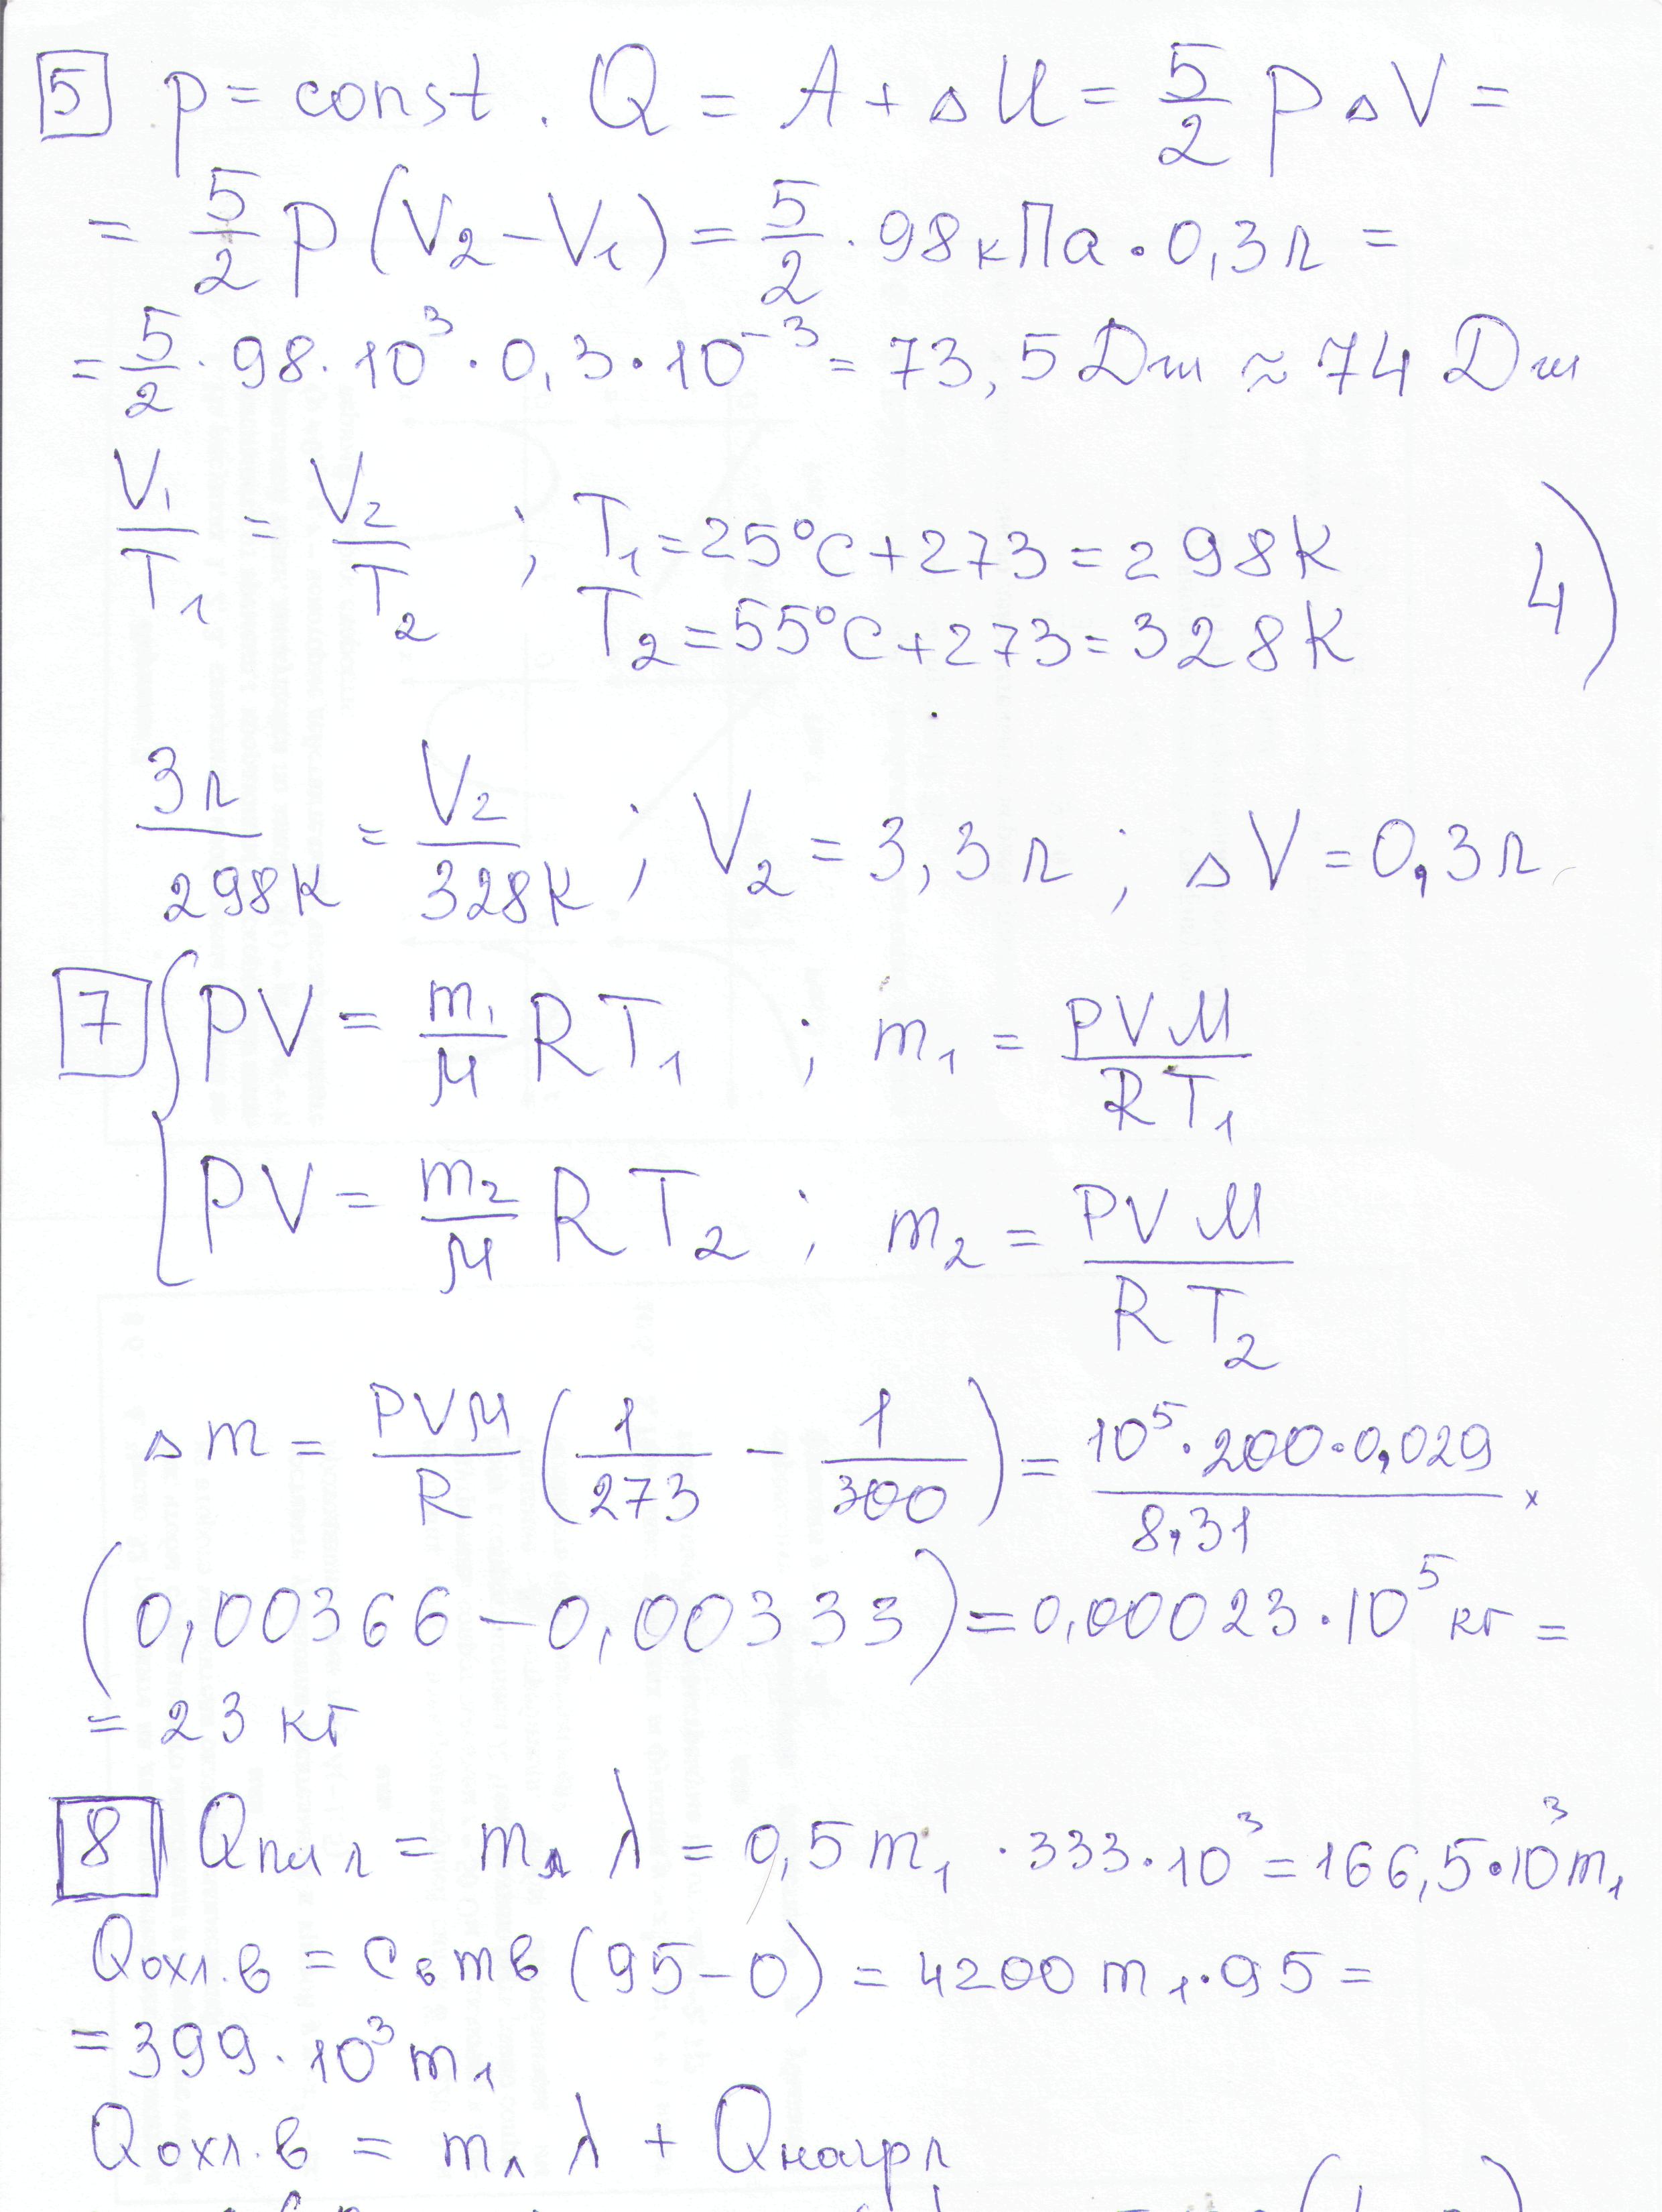 5 p = const. Q = A + ΔU = 5/2 p ΔV =
= 5/2 p (V₂ – V₁) = 5/2 · 98 кПа · 0,3 л =
= 5/2 · 98 · 10³ · 0,3 · 10⁻³ = 73,5 Дж ≈ 74 Дж
V₁/T₁ = V₂/T₂ ; T₁ = 25°C + 273 = 298 K 4)
T₂ = 55°C + 273 = 328 K
3 л/298 K = V₂/328 K ; V₂ = 3,3 л ; ΔV = 0,3 л
7 { PV = m₁/M RT₁ ; m₁ = PVM/RT₁
PV = m₂/M RT₂ ; m₂ = PVM/RT₂
Δm = PVM/R (1/273 – 1/300) = 10⁵ · 200 · 0,029/8,31 ×
(0,00366 – 0,00333) = 0,00023 · 10⁵ кг =
= 23 кг
8 Qпл л = mл λ = 0,5 m₁ · 333 · 10³ = 166,5 · 10³ m₁
Qохл. в = cв mв (95 – 0) = 4200 m₁ · 95 =
= 399 · 10³ m₁
Qохл. в = mл λ + Qнагр л